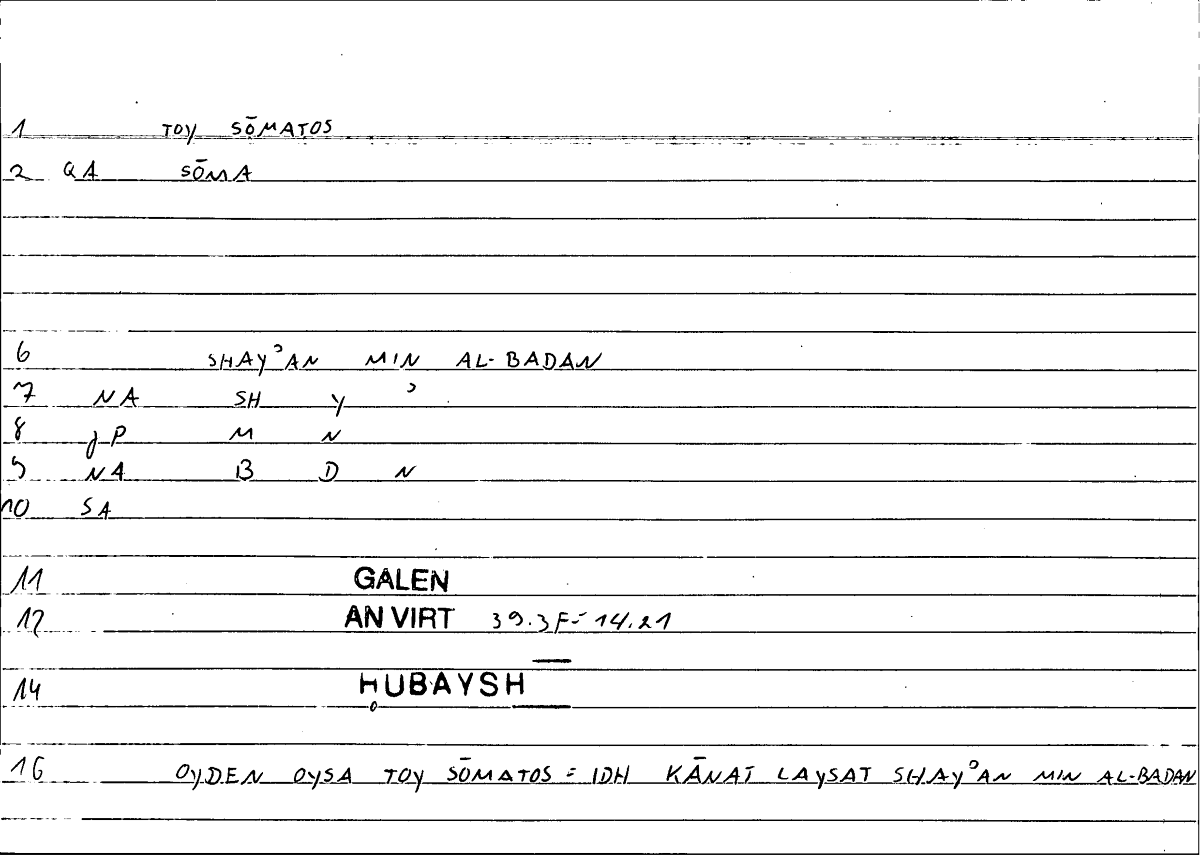 1 TOY SŌMATOS
2 QA SŌMA
6 SHAYʾAN MIN AL-BADAN
7 NA SH Y ʾ
8 JP M N
9 NA B D N
10 SA
11 GALEN
12 AN VIRT 39.3F=14.21
14 ḤUBAYSH
16 OYDEN OYSA TOY SŌMATOS = IDH KĀNAT LAYSAT SHAYʾAN MIN AL-BADAN